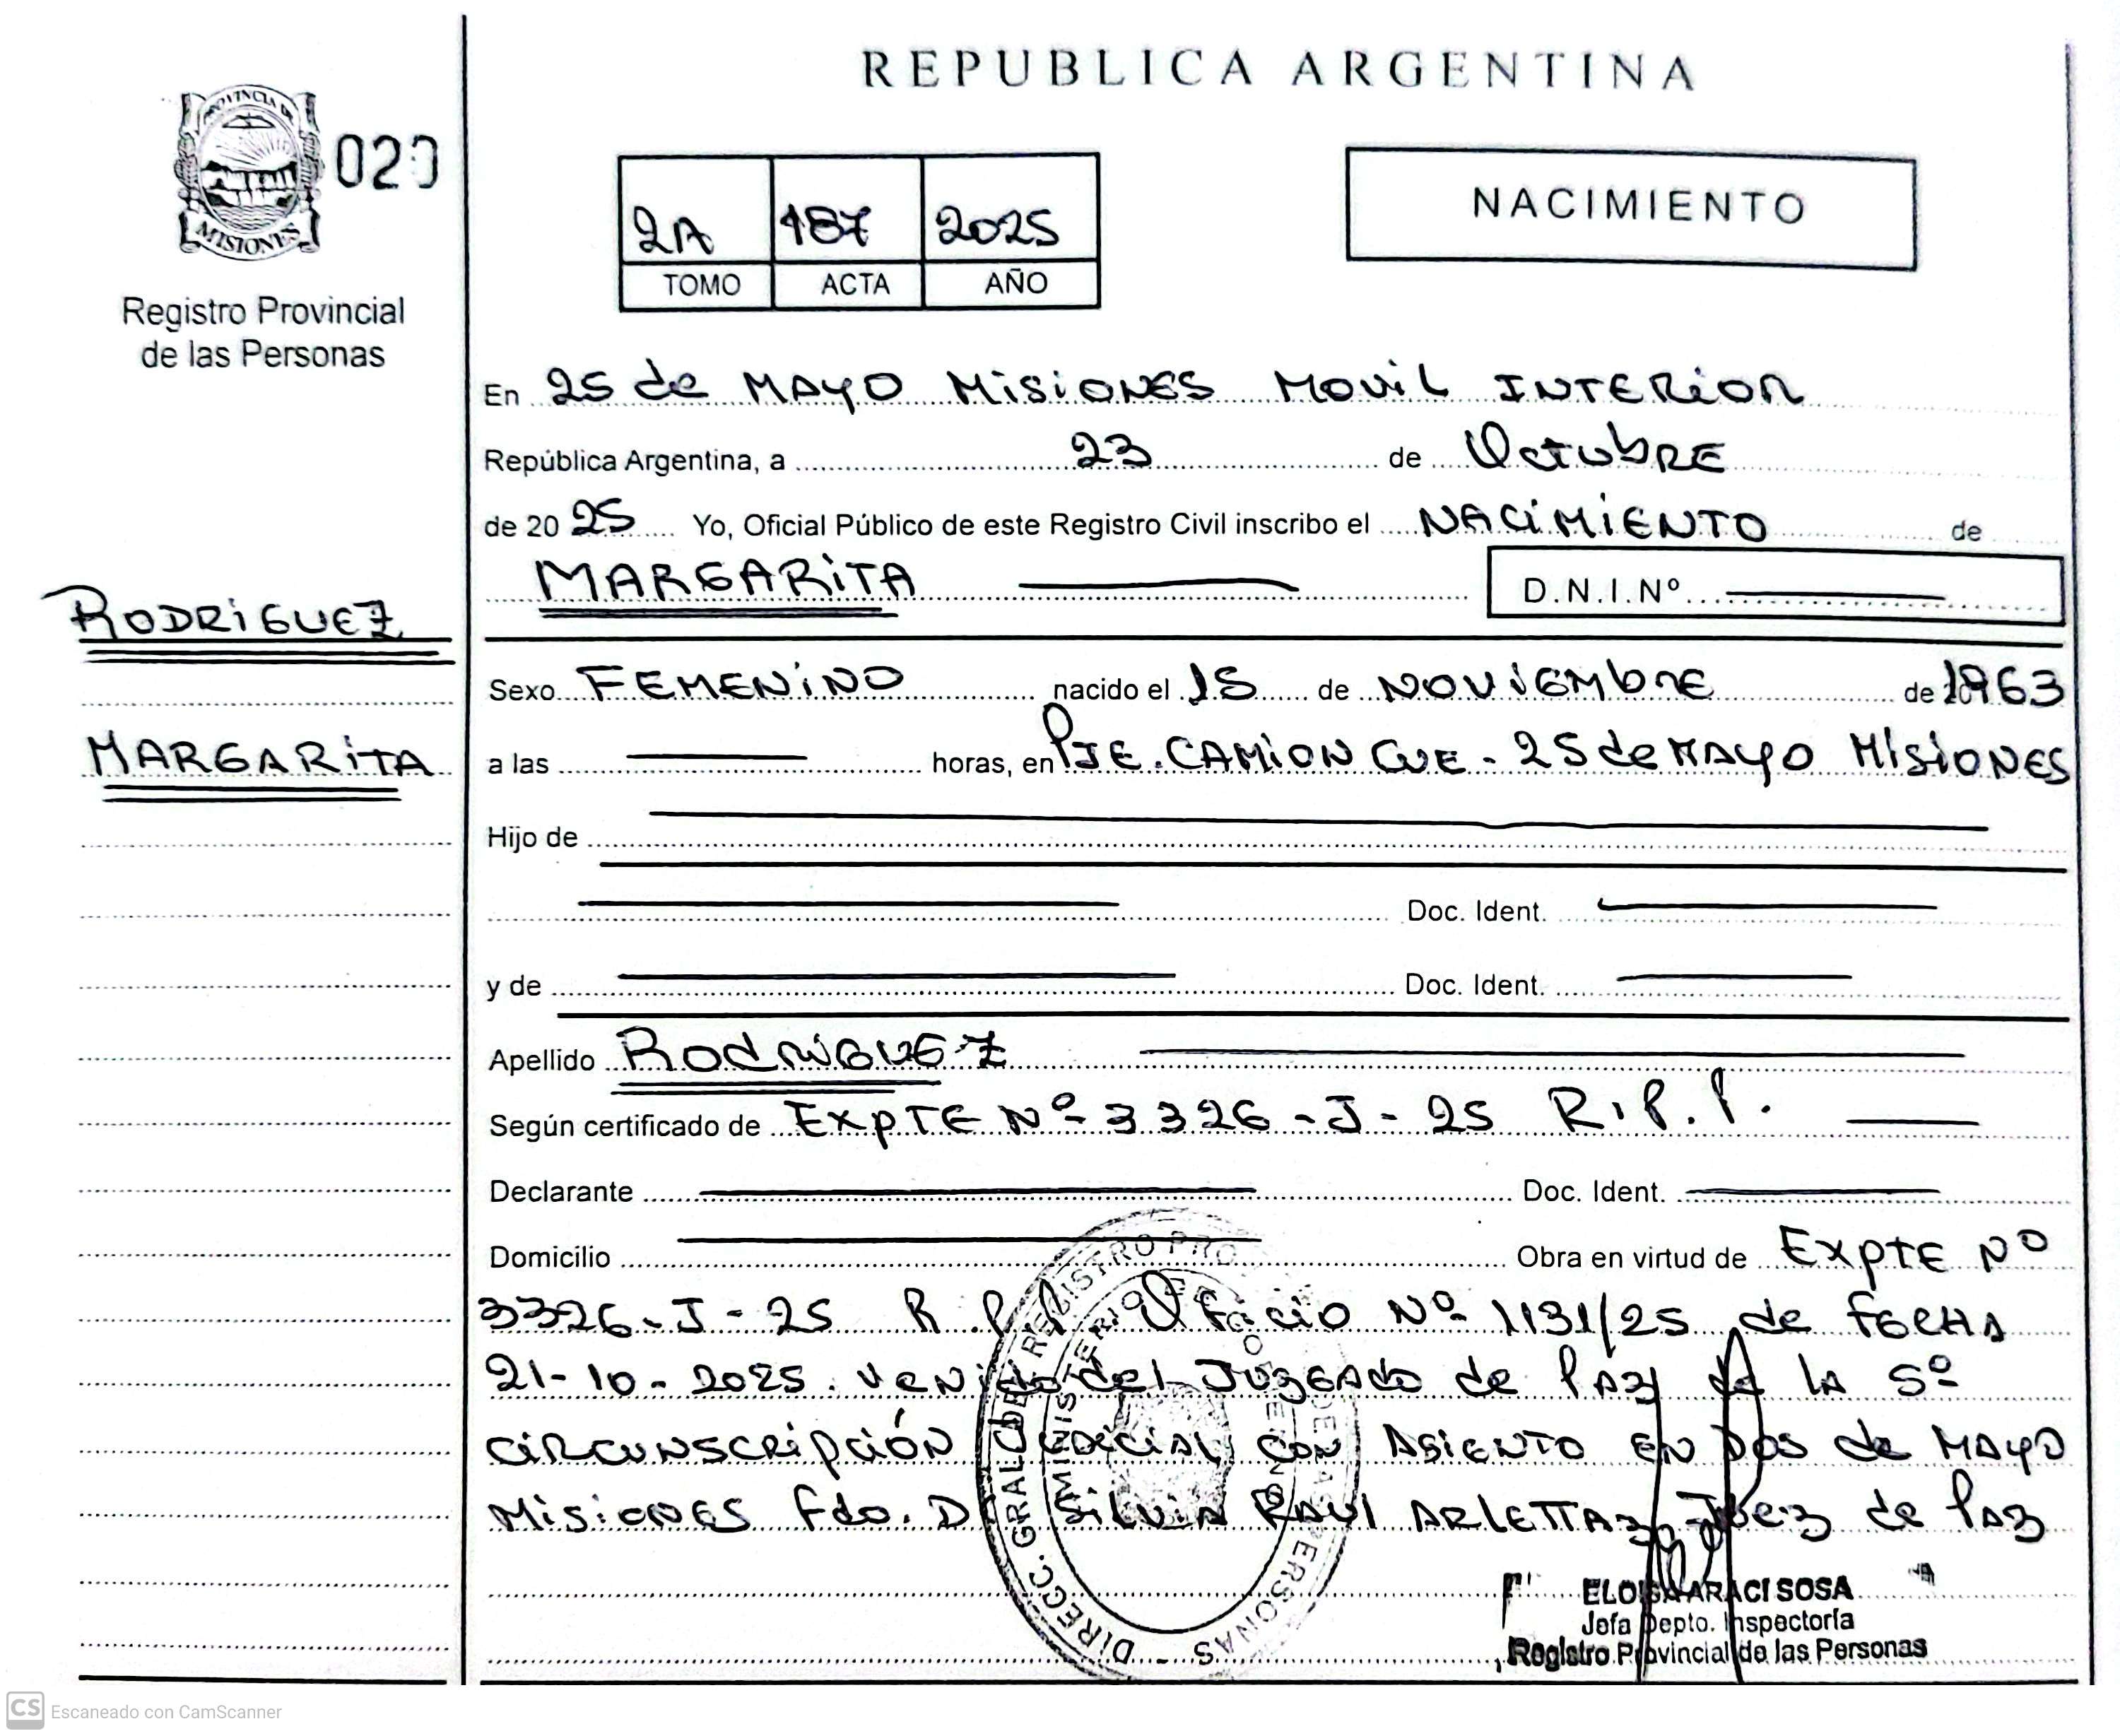 REPUBLICA ARGENTINA
PROVINCIA DE
MISIONES
020
Registro Provincial
de las Personas
2A 187 2025
TOMO ACTA AÑO
NACIMIENTO
En 25 de MAYO MISIONES MOVIL INTERIOR
República Argentina, a 23 de Octubre
de 2025 Yo, Oficial Público de este Registro Civil inscribo el NACIMIENTO de
MARGARITA D.N.I.Nº
RODRIGUEZ
MARGARITA
Sexo FEMENINO nacido el 15 de NOVIEMBRE de 1963
a las horas, en PJE. CAMION CUE - 25 de MAYO MISIONES
Hijo de
Doc. Ident.
y de Doc. Ident.
Apellido RODRIGUEZ
Según certificado de EXPTE Nº 3326-J-25 R.P.P.
Declarante Doc. Ident.
Domicilio Obra en virtud de EXPTE Nº
3326-J-25 R.P.P. Oficio Nº 1131/25 de FECHA
21-10-2025. venido del JUZGADO de PAZ de LA 5º
CIRCUNSCRIPCIÓN JUDICIAL CON ASIENTO EN DOS de MAYO
MISIONES Fdo. D SILVIA RAUL ARLETTAZ JUEZ de PAZ
DIRECC. GRAL. DEL REGISTRO PRO DE LAS PERSONAS
MINISTERIO DE GOBIERNO
ELOISA ARACI SOSA
Jefa Depto. Inspectoría
Registro Provincial de las Personas
CS Escaneado con CamScanner